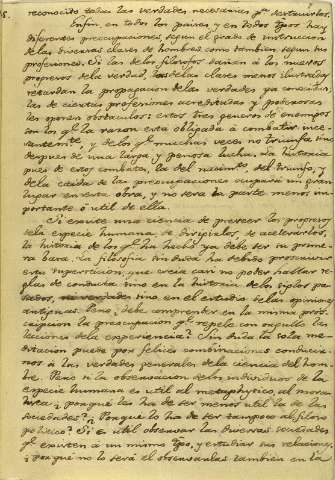 reconocido todas las verdades necesarias pª destruirlos.
Enfin, en todos los paises, y en todos tpos hay
diferentes preocupaciones, segun el grado de instruccion
de las diversas clases de hombres, como tambien segun sus
profesiones. Si las de los filosofos dañan á los nuevos
progresos de la verdad, las de las clases menos ilustradas
retardan la propagacion de las verdades ya conocidas;
las de ciertas profesiones acreditadas y poderosas
les oponen obstaculos: estos tres generos de enemigos
son los qº la razon esta obligada á combatir ince-
santemtº, y de los qº muchas veces no triunfa sino
despues de una larga y penosa lucha. La historia
pues de estos combates, la del nacimtº, del triunfo, y
de la caida de las preocupaciones ocupará un gran
lugar en esta obra, y no será la parte menos im-
portante ó util de ella.
Si existe una ciencia de preveer los progresos
de la especie humana, de dirigirlos, de acelerarlos,
la historia de los qº ha hecho ya debe ser su prime-
ra basa. La filosofia sin duda ha debido proscrivir
esta supersticion, que creia casi no poder hallar re-
glas de conducta sino en la historia de los siglos pa-
sados, sino en el estudio de las opiniones
antiguas. Pero, ¿debe comprender en la misma pros-
cripcion la preocupacion qº repele con orgullo las
lecciones de la experiencia? Sin duda la sola me-
ditacion puede por felices combinaciones conducir-
nos á las verdades generales de la ciencia del hom-
bre. Pero si la observacion de los individuos de la
especie humana es util al metaphysico, al mora-
lista, ¿porqué les ha de ser menos util la de las
sociedades? ¿Porqué lo ha de ser tampoco al filoso
politico? Si es util observar las diversas sociedades
qº existen á un mismo tpo, y estudiar sus relaciones,
¿porqué no lo será el observarlas tambien en la